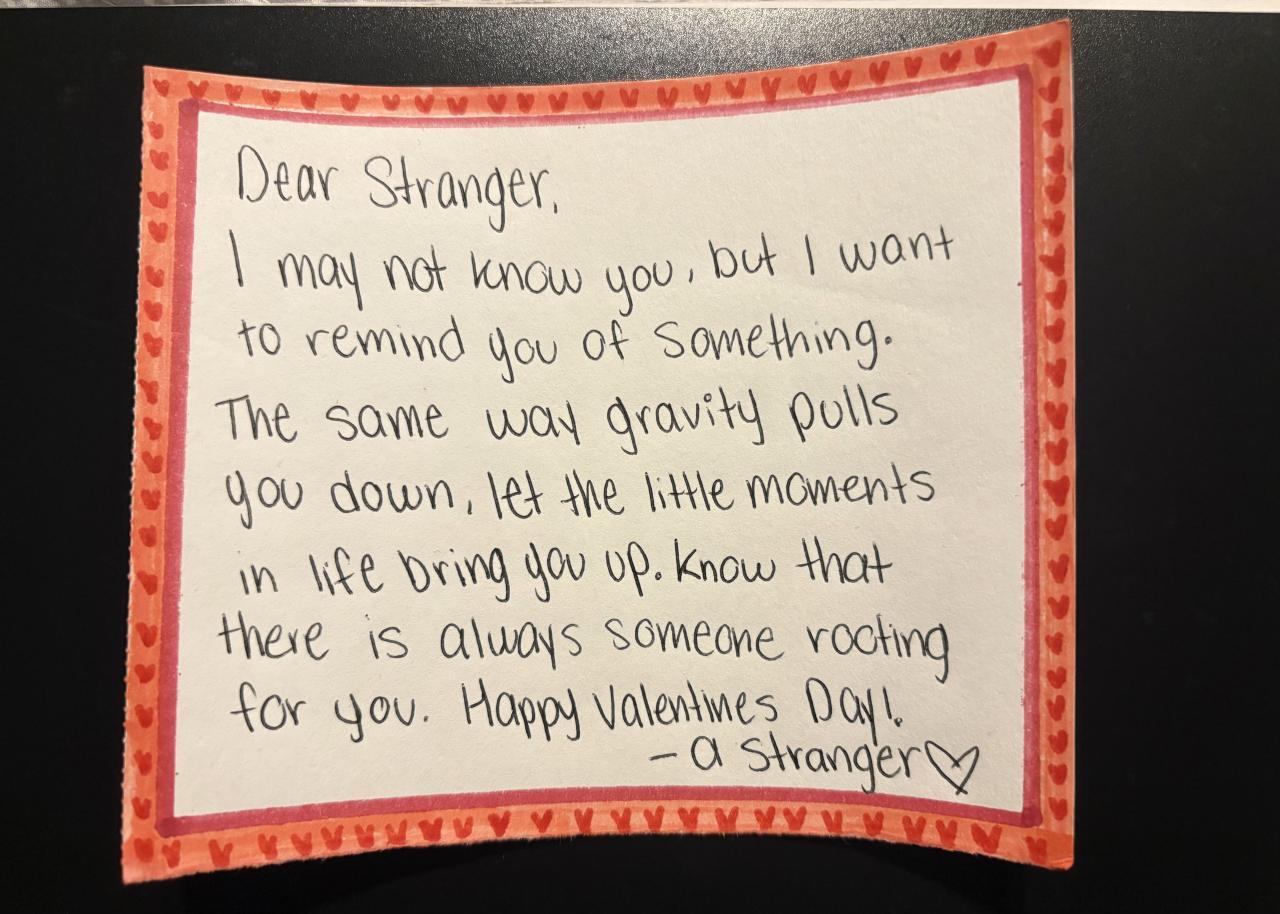 Dear Stranger,
I may not know you, but I want
to remind you of something.
The same way gravity pulls
you down, let the little moments
in life bring you up. Know that
there is always someone rooting
for you. Happy Valentines Day!
- a Stranger♡